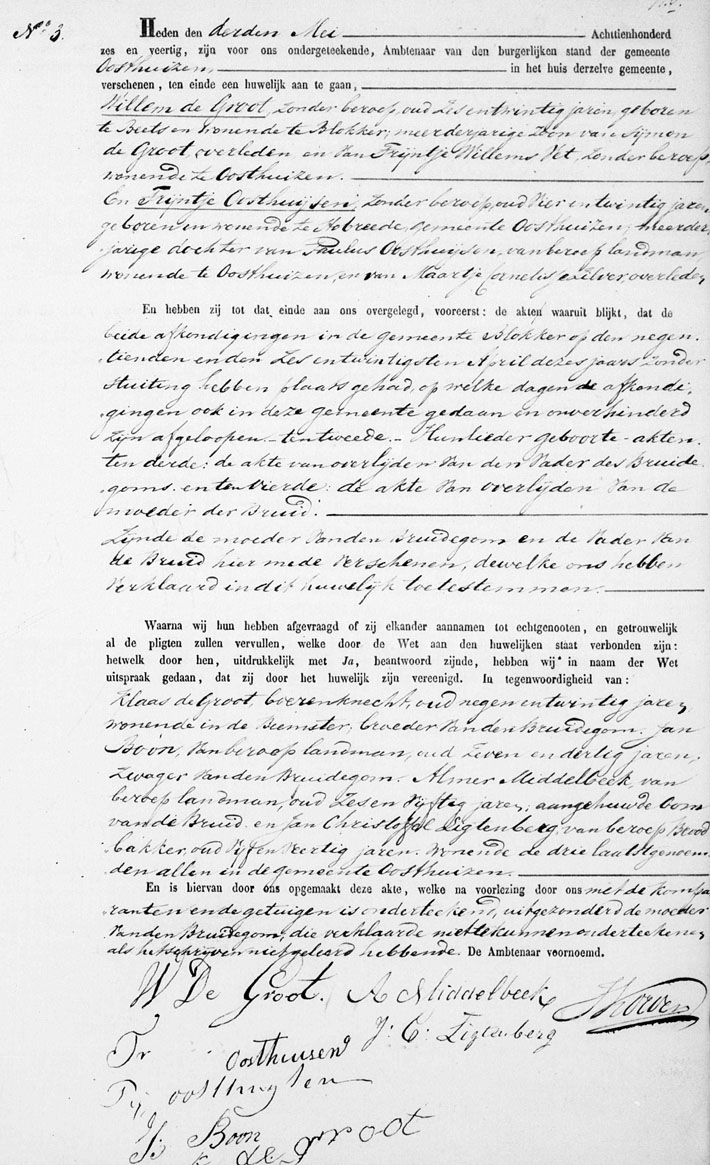 No. 3.
Heden den derden Mei Achttienhonderd
zes en veertig, zijn voor ons ondergeteekende, Ambtenaar van den burgerlijken stand der gemeente
Oosthuizen, in het huis derzelve gemeente,
verschenen, ten einde een huwelijk aan te gaan,
Willem de Groot, zonder beroep, oud zes entwintig jaren, geboren
te Beets en wonende te Blokker, meerderjarige zoon van Sijmon
de Groot, overleden en van Trijntje Willems Vet, zonder beroep,
wonende te Oosthuizen.
En Trijntje Oosthuijsen, zonder beroep, oud vier entwintig jaren
geboren en wonende te Hobreede, gemeente Oosthuizen, meerder,
jarige dochter van Paulus Oosthuijsen, van beroep landman,
wonende te Oosthuizen, en van Maartje Cornelisse Zilver, overleden
En hebben zij tot dat einde aan ons overgelegd, vooreerst: de akten waaruit blijkt, dat de
beide afkondigingen in de gemeente Blokker op den negen,
tienden en den zes entwintigsten April dezes jaars zonder
stuiting hebben plaats gehad, op welke dagen de afkondi,
gingen ook in deze gemeente gedaan en onverhinderd
zijn afgeloopen – ten tweede – Hunlieder geboorte-akten.
ten derde: de akte van overlijden van den Vader des Bruide,
goms. en ten vierde: de akte van overlijden van de
moeder der Bruid.
Zijnde de moeder van den Bruidegom en de Vader van
de Bruid hier mede verschenen, dewelke ons hebben
verklaard in dit huwelijk toetestemmen.
Waarna wij hun hebben afgevraagd of zij elkander aannamen tot echtgenooten, en getrouwelijk
al de pligten zullen vervullen, welke door de Wet aan den huwelijken staat verbonden zijn:
hetwelk door hen, uitdrukkelijk met Ja, beantwoord zijnde, hebben wij in naam der Wet
uitspraak gedaan, dat zij door het huwelijk zijn vereenigd. In tegenwoordigheid van:
Klaas de Groot, boerenknecht, oud negen entwintig jaren,
wonende in de Beemster, broeder van den Bruidegom. Jan
Boon, van beroep landman, oud zeven en dertig jaren,
zwager van den Bruidegom. Almer Middelbeek, van
beroep landman, oud zes en vijftig jaren, aangehuwde Oom
van de Bruid en Jan Christoffel Ligtenberg, van beroep Brood
bakker, oud vijf en veertig jaren. wonende de drie laatstgenoem,
den allen in de gemeente Oosthuizen.
En is hiervan door ons opgemaakt deze akte, welke na voorlezing door ons met de kompa
ranten en de getuigen is onderteekend, uitgezonderd de moeder
van den Bruidegom, die verklaarde niet te kunnen onderteekenen
als het schrijven niet geleerd hebbende. De Ambtenaar voornoemd.
W De Groot. A Middelbeek
Tr Oosthuisen J: C: Ligtenberg
oosthuysen
J: Boon
K de groot